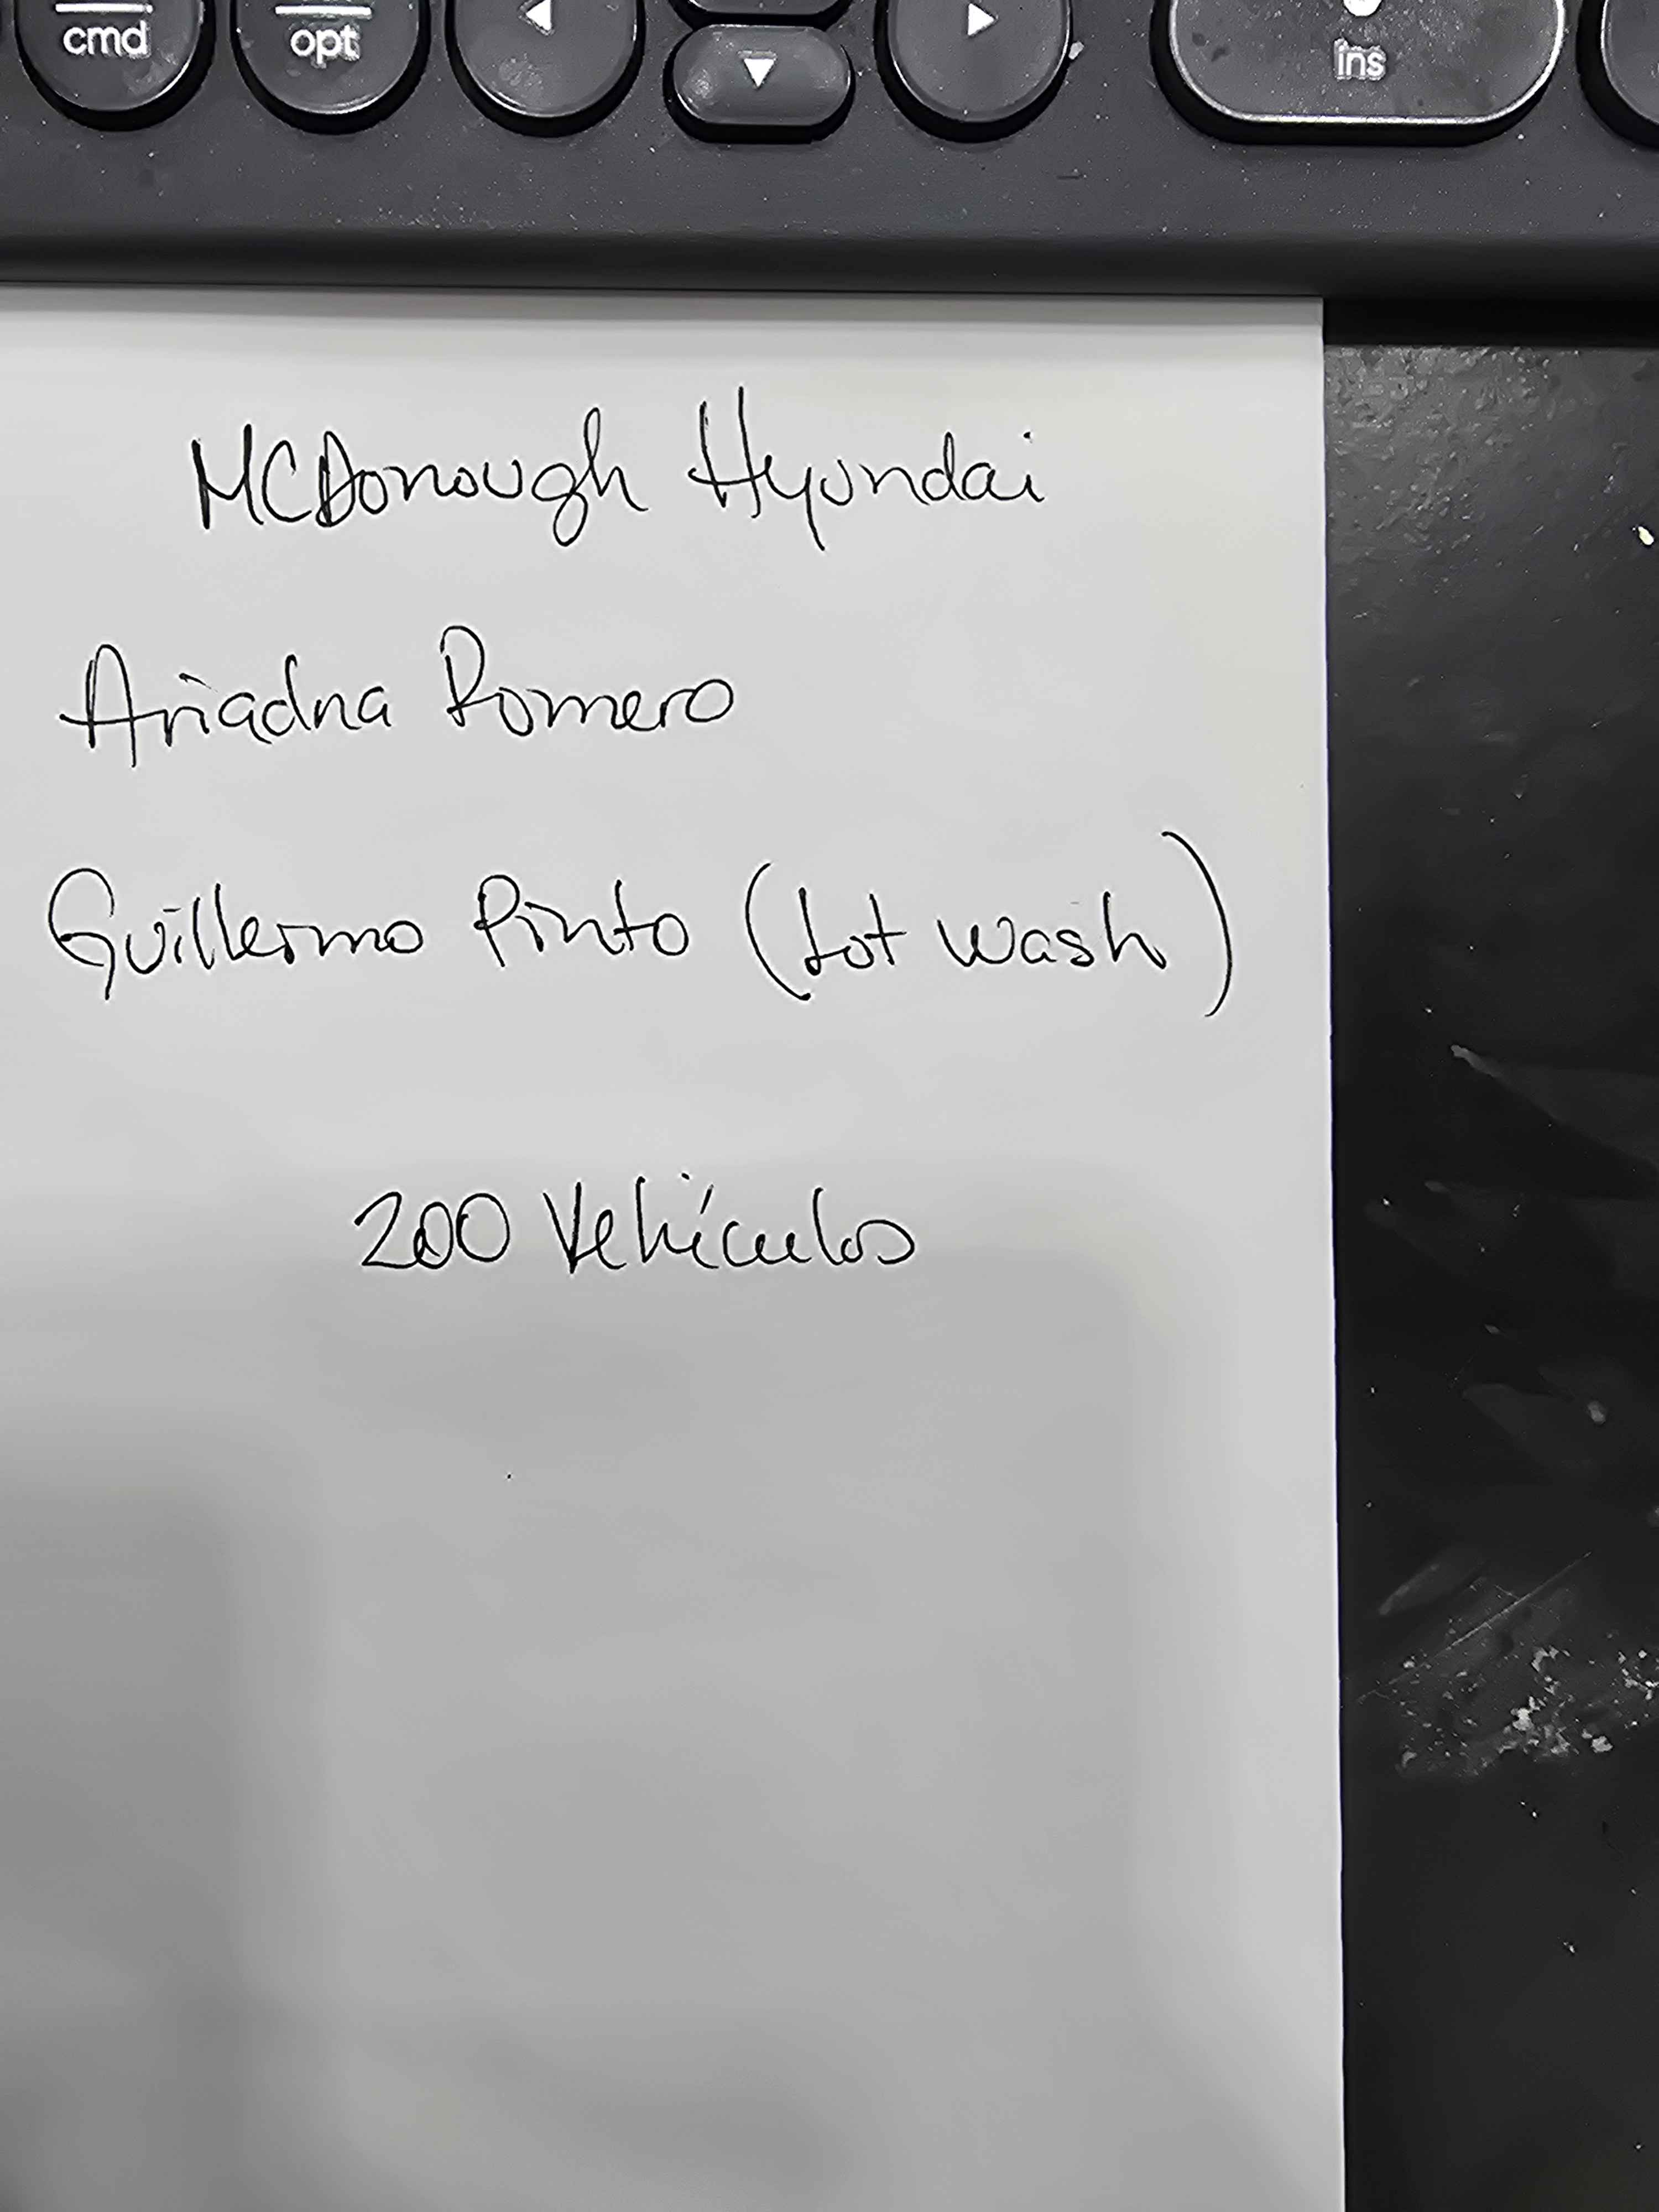 cmd opt ◀ ▼ ▶ ins
McDonough Hyundai
Ariadna Romero
Guillermo Pinto (Lot wash)
200 Vehículos